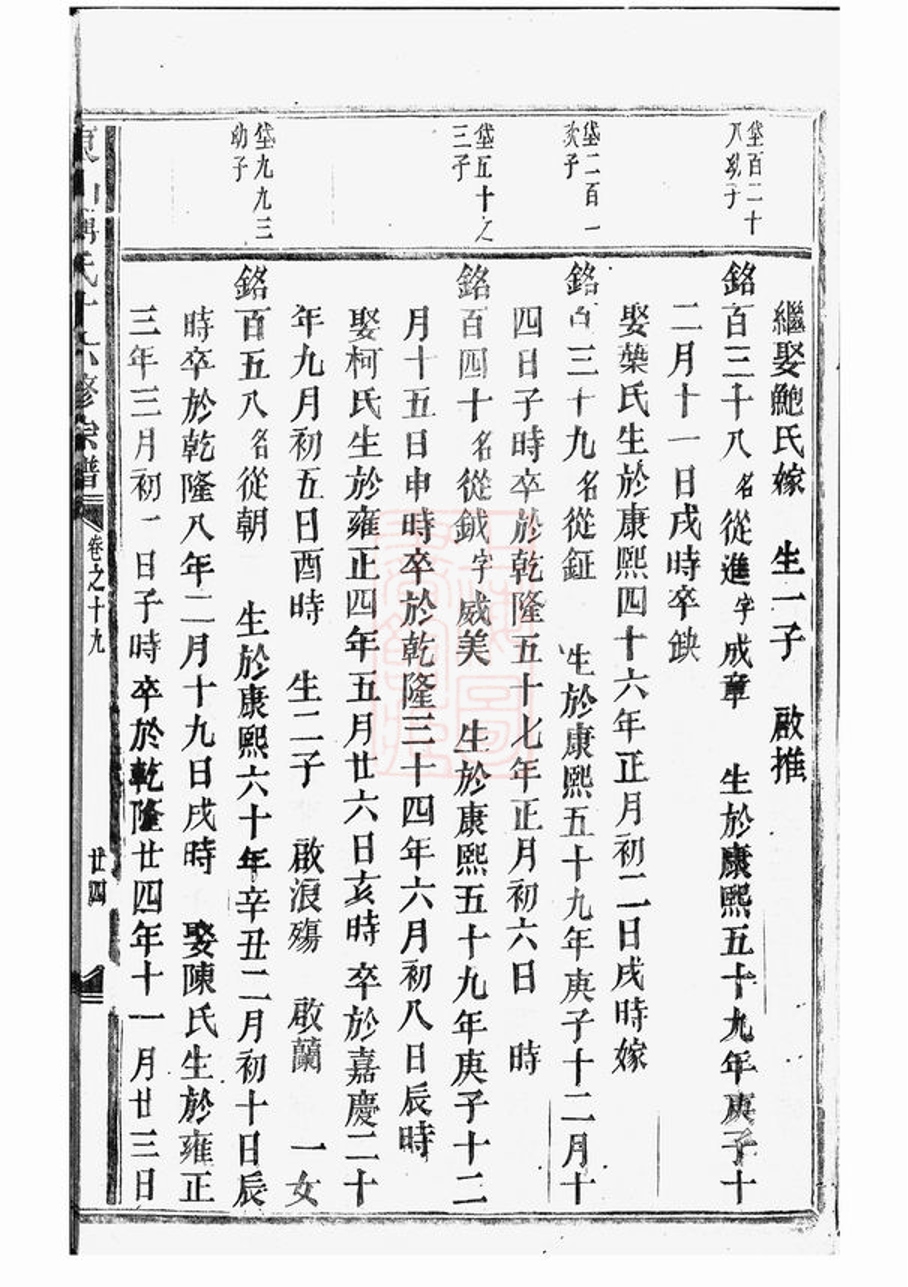 繼娶鮑氏嫁 生一子 啟推
垈百二十
八幼子
銘百三十八名從進字成章 生於康熙五十九年庚子十
二月十一日戌時卒缺
娶葉氏生於康熙四十六年正月初二日戌時嫁
垈二百一
次子
銘百三十九名從鉦 生於康熙五十九年庚子十二月十
四日子時卒於乾隆五十七年正月初六日 時
垈五十之
三子
銘百四十名從鉞字威美 生於康熙五十九年庚子十二
月十五日申時卒於乾隆三十四年六月初八日辰時
娶柯氏生於雍正四年五月廿六日亥時卒於嘉慶二十
年九月初五日酉時 生二子 啟浪殤 啟蘭 一女
垈九九三
幼子
銘百五八名從朝 生於康熙六十年辛丑二月初十日辰
時卒於乾隆八年二月十九日戌時 娶陳氏生於雍正
三年三月初一日子時卒於乾隆廿四年十一月廿三日
氏十六修宗譜 卷之十九 廿四